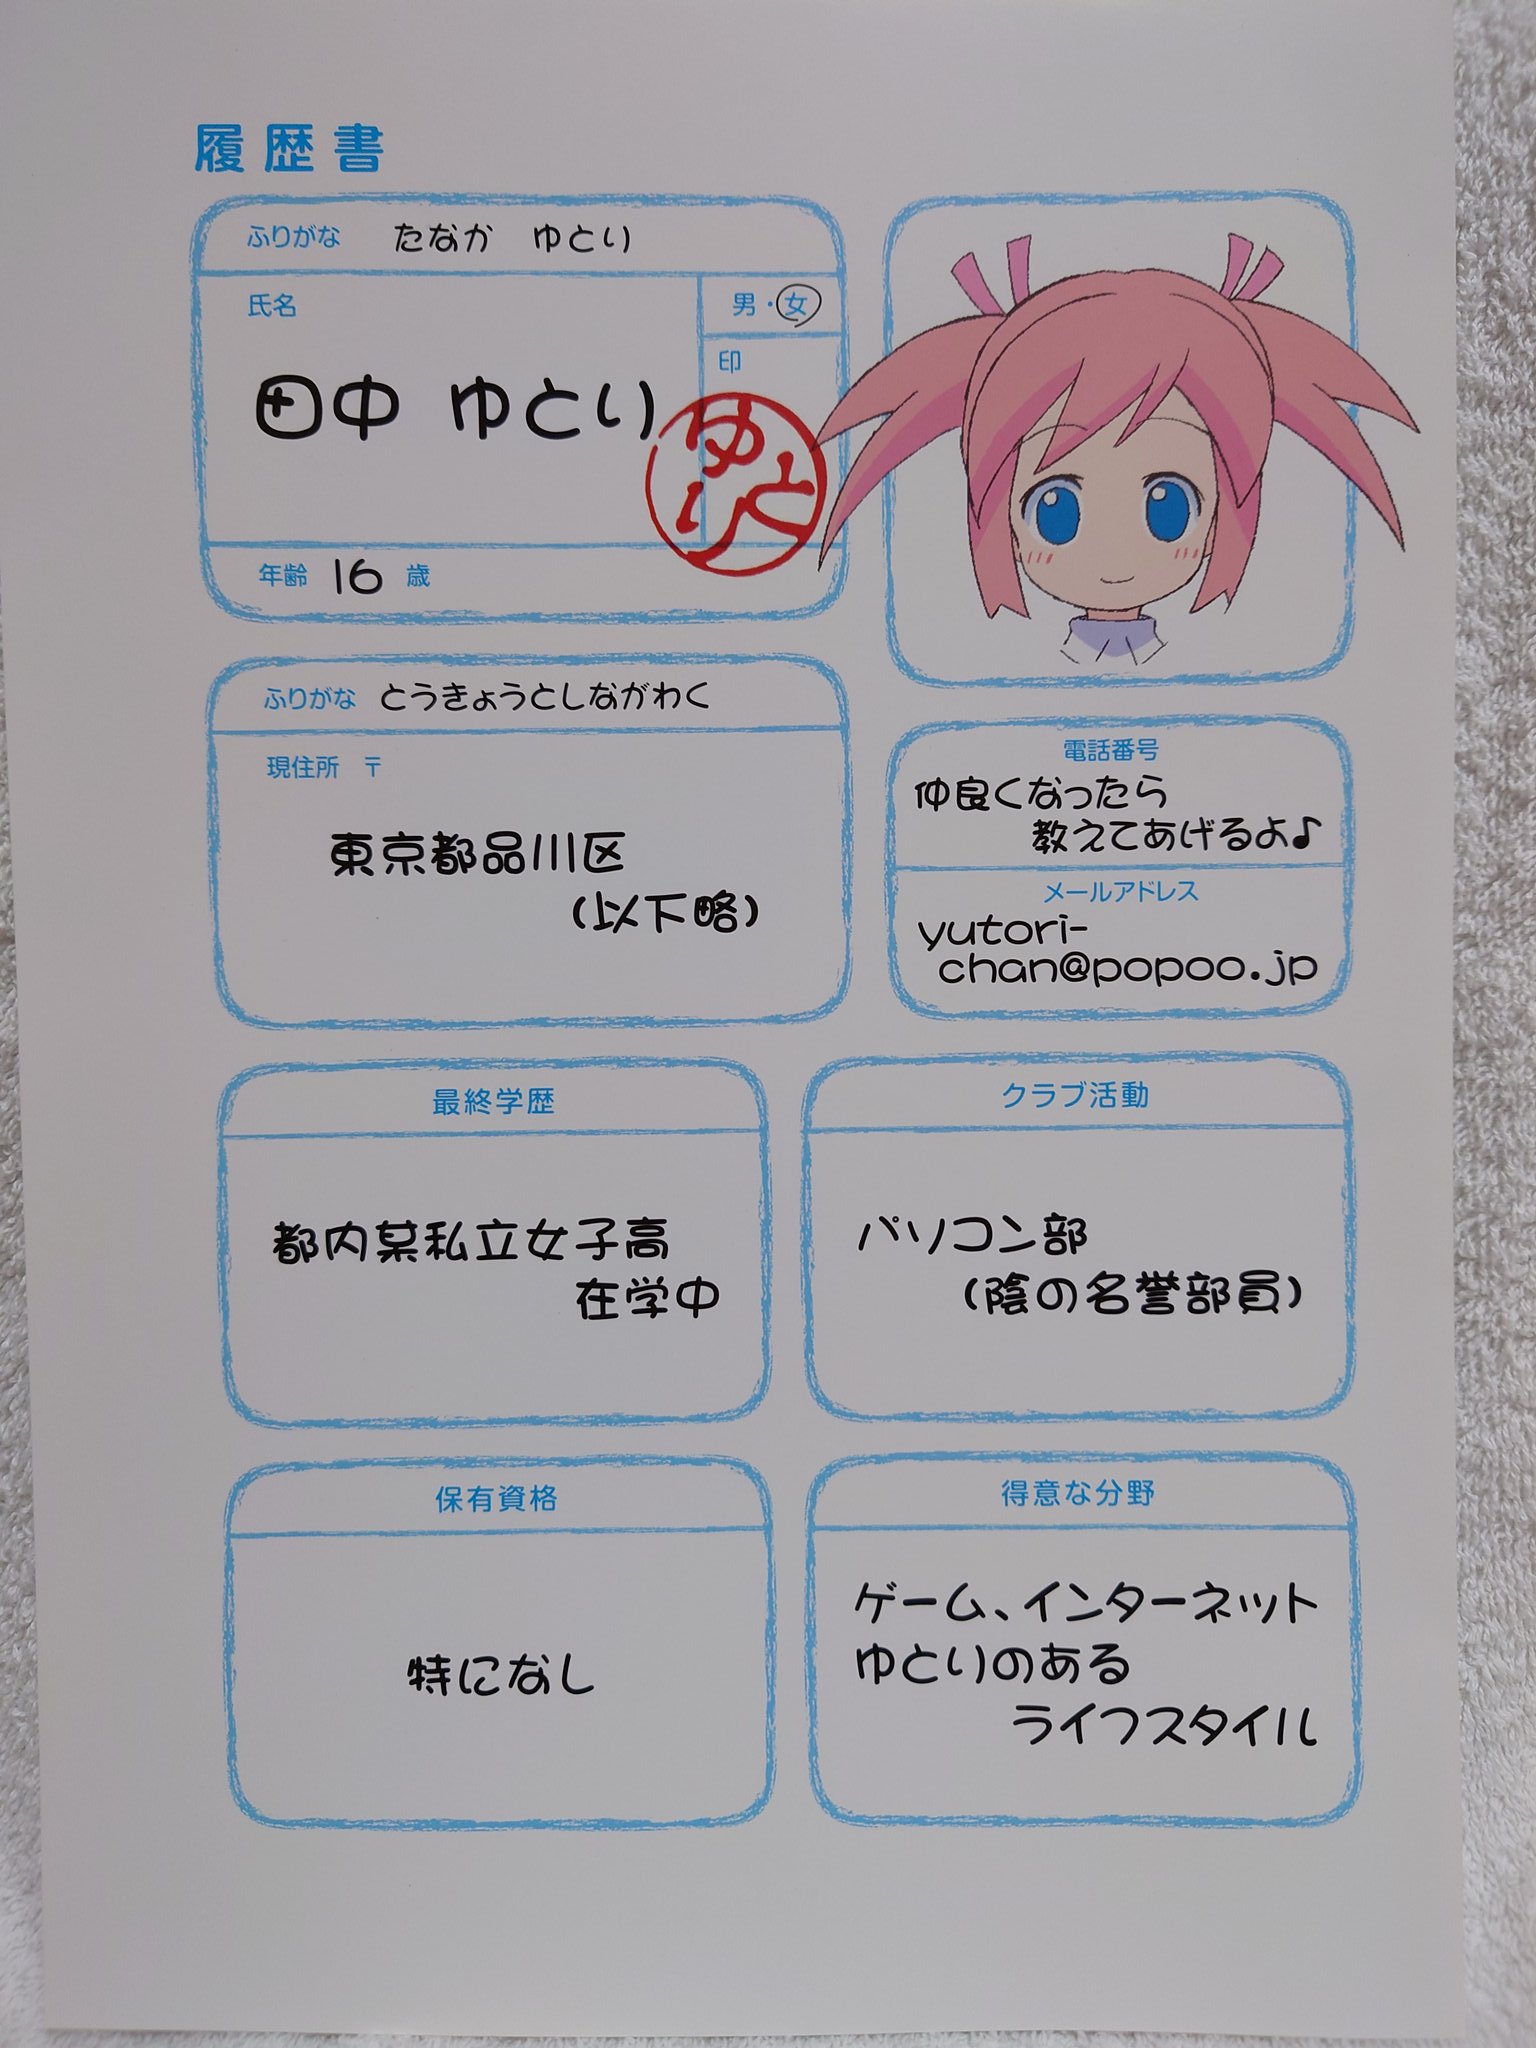 履歴書
ふりがな たなか ゆとり
氏名
男・女
田中 ゆとり
印
ゆとり
年齢 16 歳
ふりがな とうきょうとしながわく
現住所 〒
東京都品川区
(以下略)
電話番号
仲良くなったら
教えてあげるよ♪
メールアドレス
yutori-
chan@popoo.jp
最終学歴
都内某私立女子高
在学中
クラブ活動
パソコン部
(陰の名誉部員)
保有資格
特になし
得意な分野
ゲーム、インターネット
ゆとりのある
ライフスタイル